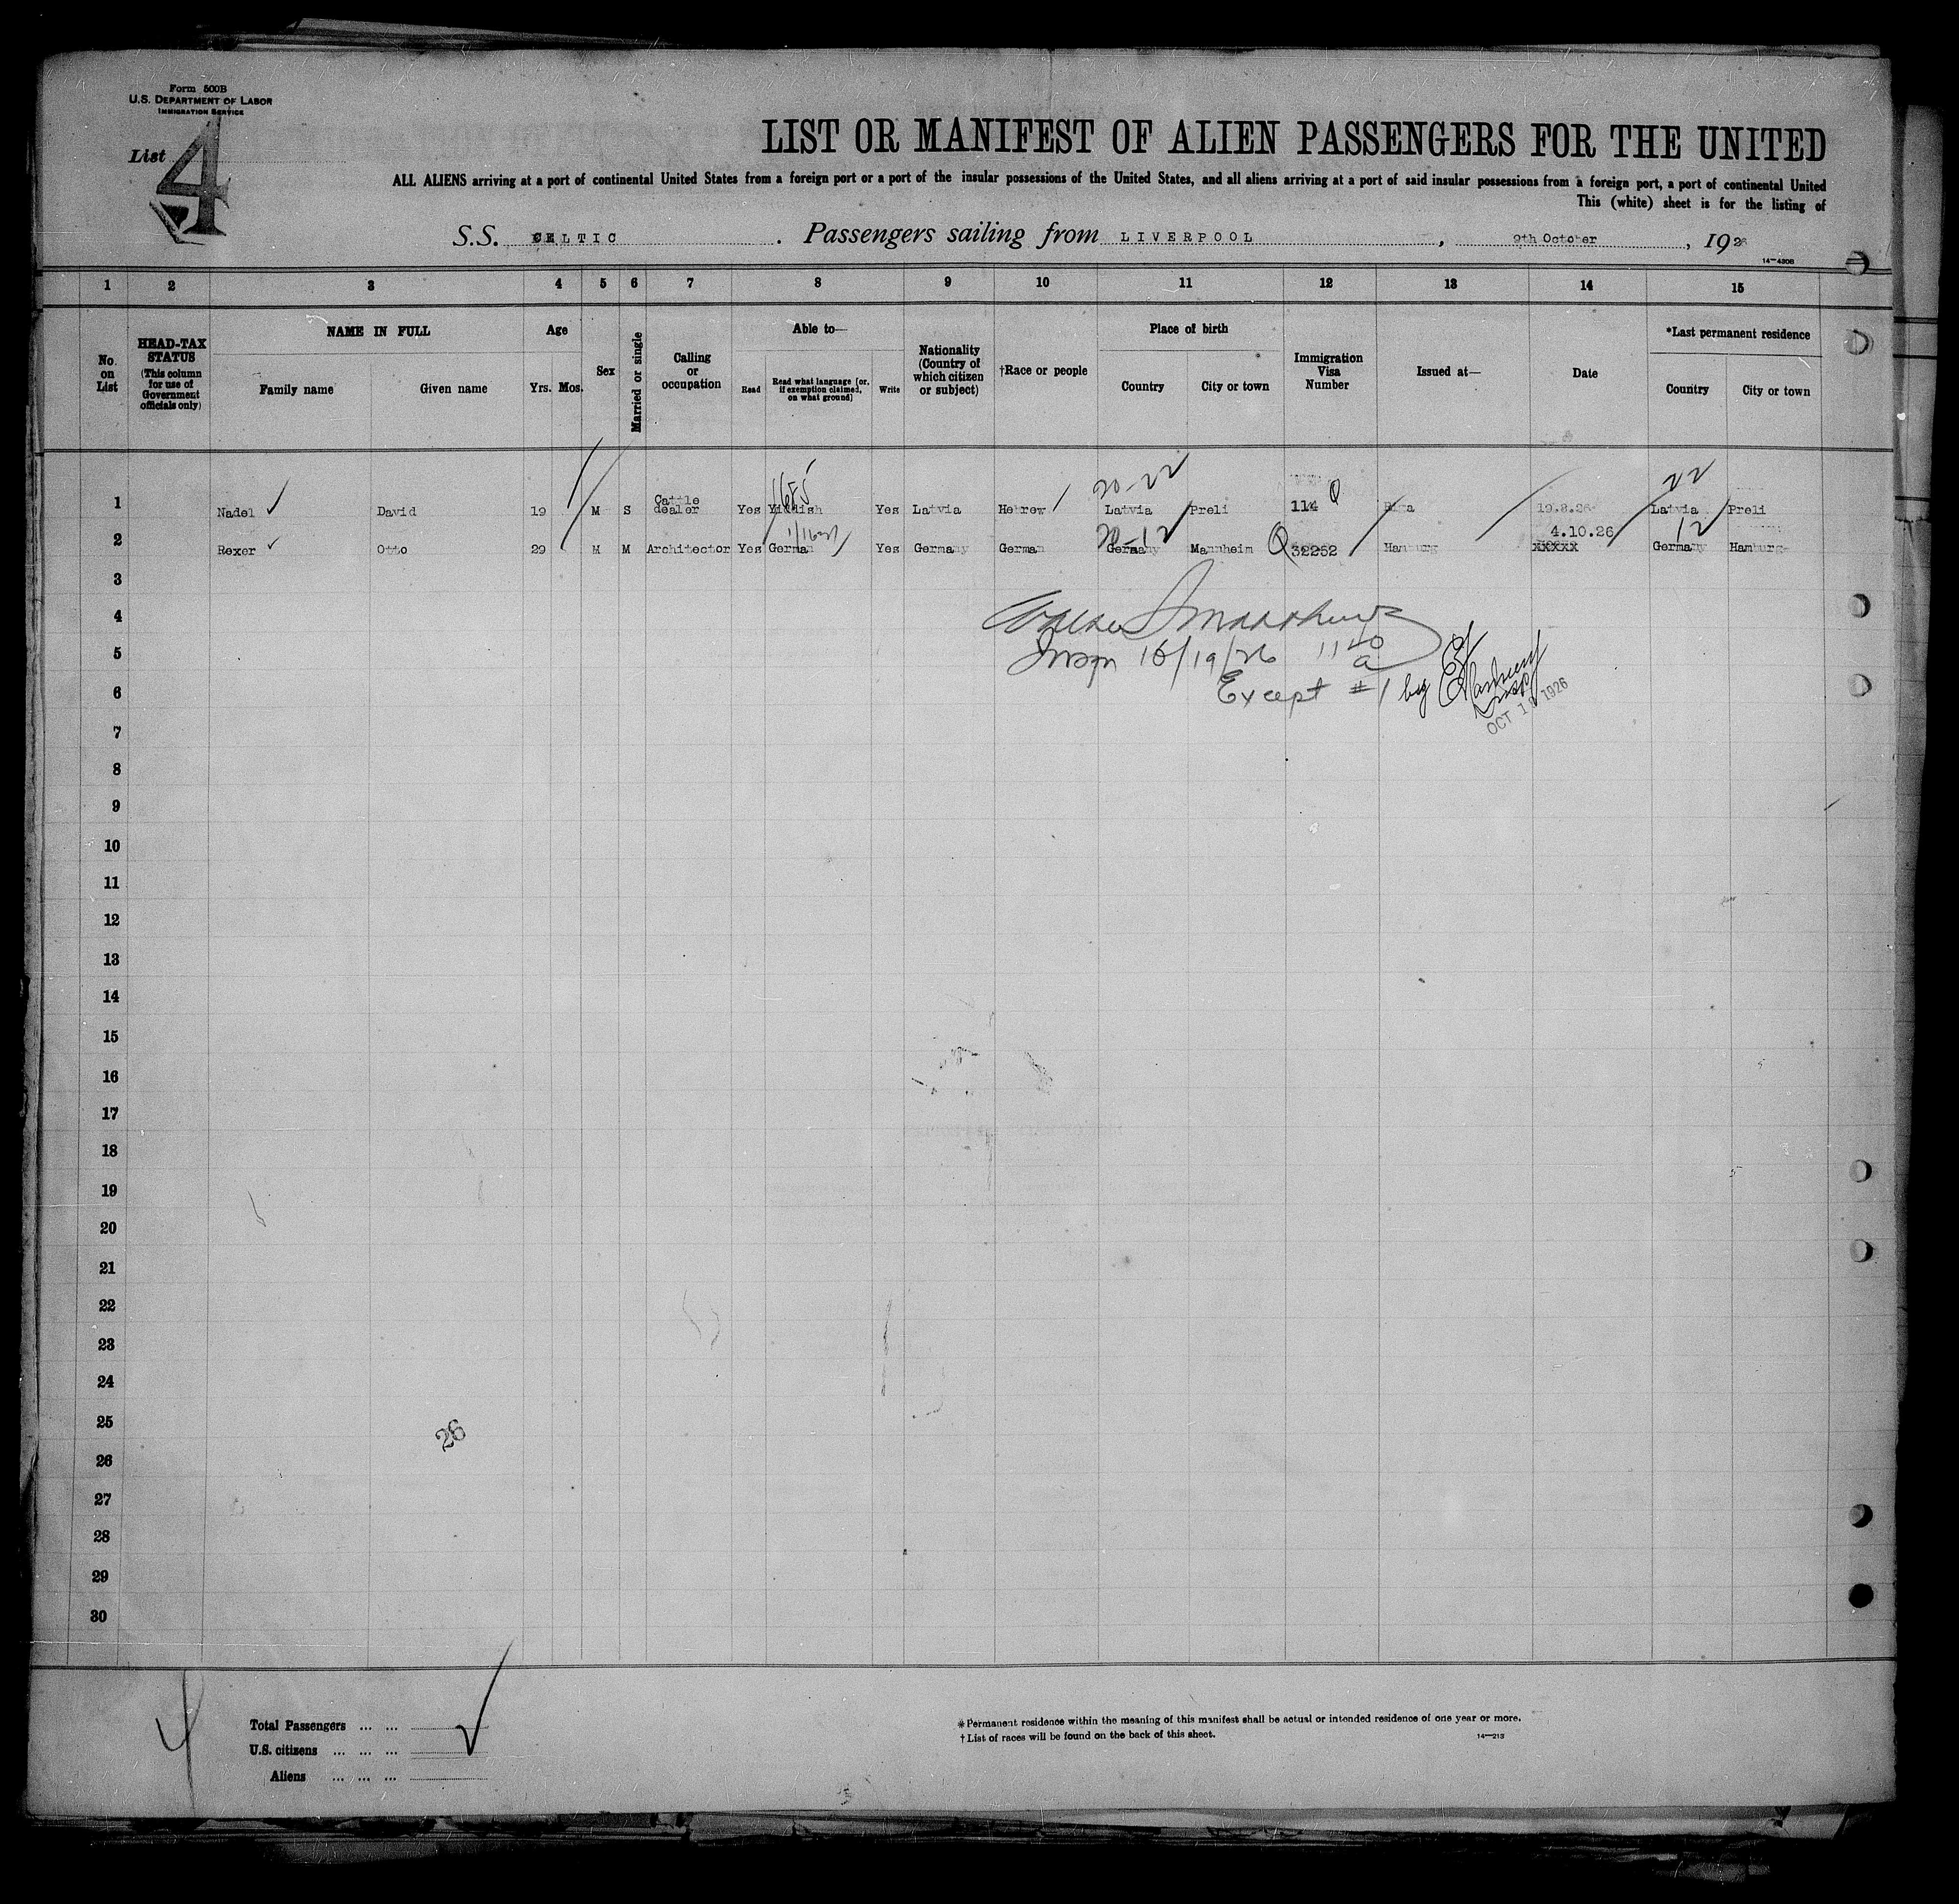 Form 500B
U.S. DEPARTMENT OF LABOR
IMMIGRATION SERVICE
List 4
LIST OR MANIFEST OF ALIEN PASSENGERS FOR THE UNITED
ALL ALIENS arriving at a port of continental United States from a foreign port or a port of the insular possessions of the United States, and all aliens arriving at a port of said insular possessions from a foreign port, a port of continental United
This (white) sheet is for the listing of
S.S. CELTIC . Passengers sailing from LIVERPOOL , 9th October , 1926
14—4208
1 2 3 4 5 6 7 8 9 10 11 12 13 14 15
No. on List
HEAD-TAX STATUS (This column for use of Government officials only)
NAME IN FULL
Family name Given name
Age
Yrs. Mos.
Sex
Married or single
Calling or occupation
Able to—
Read
Read what language [or, if exemption claimed, on what ground]
Write
Nationality (Country of which citizen or subject)
†Race or people
Place of birth
Country City or town
Immigration Visa Number
Issued at—
Date
*Last permanent residence
Country City or town
20-22 22
1 Nadel David 19 M S Cattle dealer Yes Yiddish Yes Latvia Hebrew Latvia Preli 114 Q Riga 19.8.26 Latvia Preli
20-12 4.10.26 12
2 Rexer Otto 29 M M Architector Yes German Yes Germany German Germany Mannheim Q 32262 Hamburg xxxxx Germany Hamburg
3
4
5 Insp 10/19/26 1140 a
6 Except #1 by
OCT 1926
7
8
9
10
11
12
13
14
15
16
17
18
19
20
21
22
23
24
25
26
26
27
28
29
30
4
Total Passengers ... ...
U.S. citizens ... ... ...
Aliens ... ... ...
*Permanent residence within the meaning of this manifest shall be actual or intended residence of one year or more.
†List of races will be found on the back of this sheet.
14—213